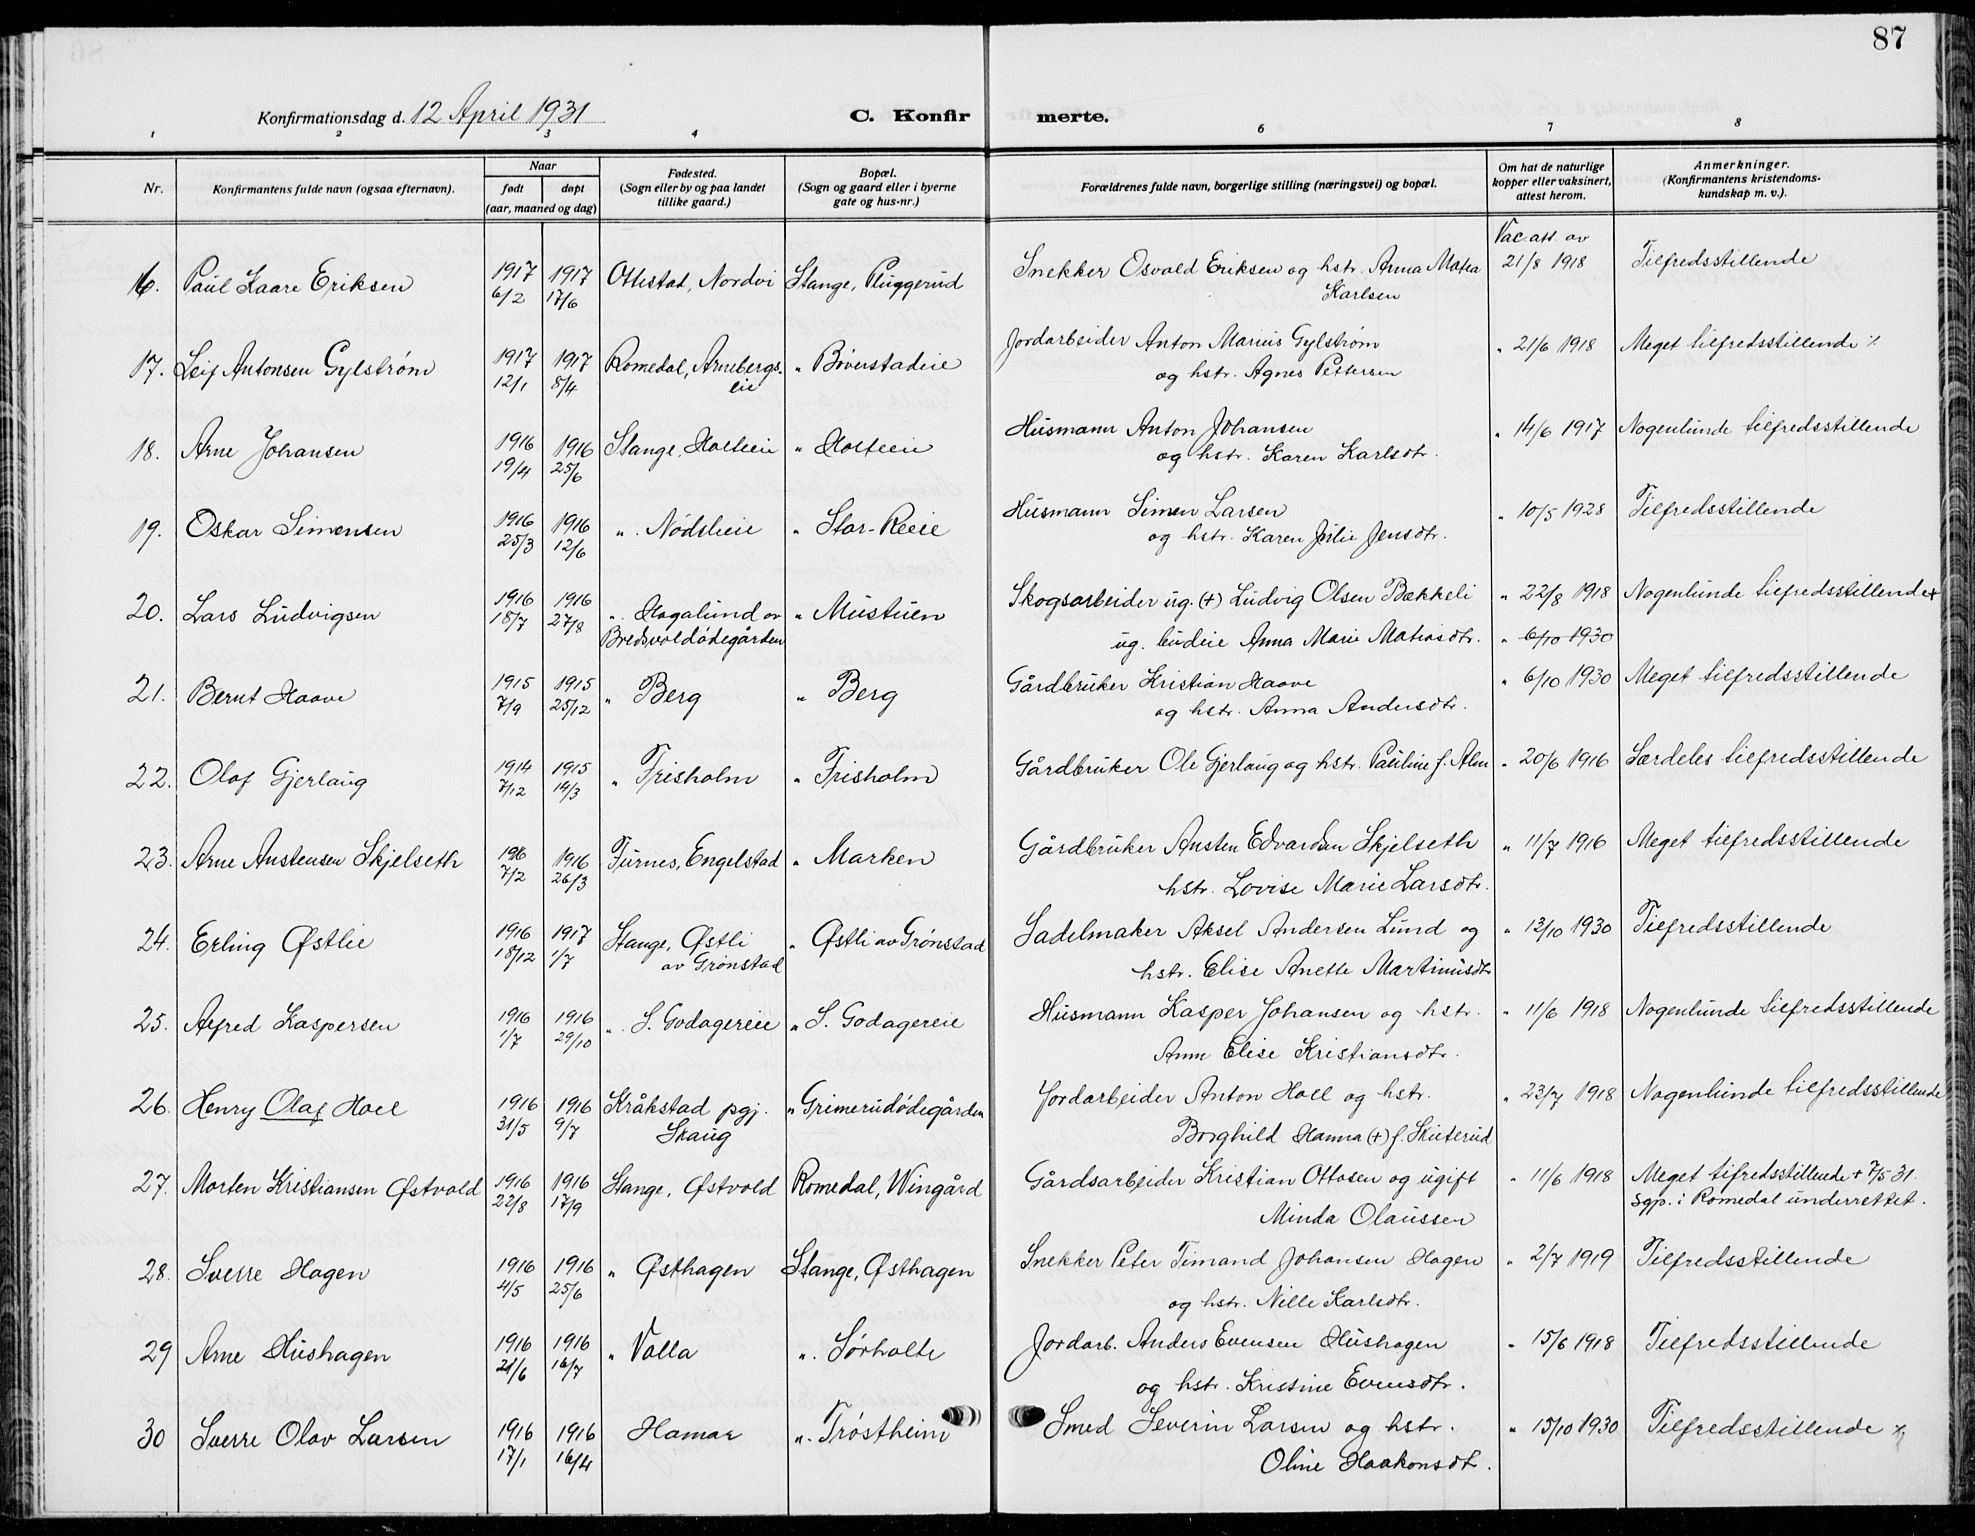 87
Konfirmationsdag d. 12 April 1931 C. Konfirmerte.
1 2 3 4 6 7 8
Nr. Konfirmantens fulde navn (ogsaa efternavn). Naar født døpt (aar, maaned og dag) Fødested. (Sogn eller by og paa landet tillike gaard.) Bopæl. (Sogn og gaard eller i byerne gate og hus-nr.) Forældrenes fulde navn, borgerlige stilling (næringsvei) og bopæl. Om hat de naturlige kopper eller vaksinert, attest herom. Anmerkninger. (Konfirmantens kristendomskundskap m. v.).
16. Paul Kaare Eriksen 1917 6/2 1917 17/6 Ottestad, Nordvi Stange, Pluggerud Snekker Osvald Eriksen og hstr. Anna Matea Karlsen Vac. att. av 21/8 1918 Tilfredsstillende
17. Leif Antonsen Gylstrøm 1917 12/1 1917 8/4 Romedal, Arnebergseie " Bøverstadeie Jordarbeider Anton Marius Gylstrøm og hstr. Agnes Pettersen " 21/6 1918 Meget tilfredsstillende %
18. Arne Johansen 1916 19/4 1916 25/6 Stange, Holteeie " Holteeie Husmann Anton Johansen og hstr. Karen Karlsdtr. " 14/6 1917 Nogenlunde tilfredsstillende
19. Oskar Simensen 1916 25/3 1916 12/6 " Nødsleie " Stor-Reeie Husmann Simen Larsen og hstr. Karen Julie Jensdtr. " 10/5 1928 Tilfredsstillende
20. Lars Ludvigsen 1916 18/7 1916 27/8 " Hagalund av Bredsvoldødegården " Mustuen Skogsarbeider ug. (+) Ludvig Olsen Bækkeli ug. budeie Anna Marie Matiasdtr. " 22/8 1918 " 6/10 1930 Nogenlunde tilfredsstillende +
21. Bernt Haave 1915 7/9 1915 25/12 " Berg " Berg Gårdbruker Kristian Haave og hstr. Anna Andersdtr. " 6/10 1930 Meget tilfredsstillende
22. Olaf Gjerlaug 1914 7/12 1915 19/3 " Frisholm " Frisholm Gårdbruker Ole Gjerlaug og hstr. Pauline f. Alm " 20/6 1916 Særdeles tilfredsstillende
23. Arne Austensen Skjelseth 1916 7/2 1916 26/3 Furnes, Engelstad " Marken Gårdbruker Austen Edvardsen Skjelseth hstr. Lovise Marie Larsdtr. " 11/7 1916 Meget tilfredsstillende
24. Erling Østlie 1916 18/12 1917 1/7 Stange, Østli av Grønstad " Østli av Grønstad Sadelmaker Aksel Andersen Lund og hstr. Elise Anette Martinusdtr " 13/10 1930 Tilfredsstillende
25. Alfred Kaspersen 1916 1/7 1916 29/10 " S. Godagereie " S. Godagereie Husmann Kasper Johansen og hstr. Anne Elise Kristiansdtr. " 11/6 1918 Nogenlunde tilfredsstillende
26. Henry Olaf Hoel 1916 31/5 1916 9/7 Kråkstad pgj. Skaug " Grimerudødegården Jordarbeider Anton Hoel og hstr. Borghild Hanna (+) f. Skuterud " 23/7 1918 Nogenlunde tilfredsstillende
27. Morten Kristiansen Østvold 1916 22/8 1916 17/9 Stange, Østvold Romedal, Wingård Gårdsarbeider Kristian Ottosen og ugift Minda Olaussen " 11/6 1918 Meget tilfredsstillende + 7/5 31. Sgp. i Romedal underrettet.
28. Sverre Hagen 1916 4/5 1916 25/6 " Østhagen Stange, Østhagen Snekker Peter Timand Johansen Hagen og hstr. Nille Karlsdtr. " 2/7 1919 Tilfredsstillende
29 Arne Hushagen 1916 21/6 1916 16/7 " Valla " Sørholte Jordarb. Anders Evensen Hushagen og hstr. Kristine Evensdtr. " 15/6 1918 Tilfredsstillende
30 Sverre Olav Larsen 1916 17/1 1916 16/4 Hamar " Trøstheim Smed Severin Larsen og hstr. Oline Haakonsdtr. " 15/10 1930 Tilfredsstillende